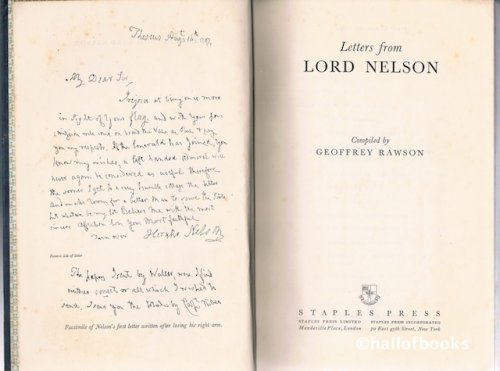 Theseus Augst 16th 1797
My Dear Sir,
I rejoice at being once more
in sight of your flag, and with your per-
mission will come on board the Ville de Paris & pay
you my respects. If the Emerald has joined, you
know my wishes, a left handed Admiral will
never again be considered as useful therefore
the sooner I get to a very humble cottage the better
and make room for a better man to serve the State
but whatever be my lot Believe me with the most
sincere affection Ever your most faithful
turn over Horatio Nelson
Front side of letter
The papers I sent by Waller, were I find
neither correct or all which I wished to
send. I send you the
Facsimile of Nelson's first letter written after losing his right arm.
Letters from
LORD NELSON
Compiled by
GEOFFREY RAWSON
STAPLES PRESS
STAPLES PRESS LIMITED
Mandeville Place, London
STAPLES PRESS INCORPORATED
70 East 45th Street, New York
©hallofbooks